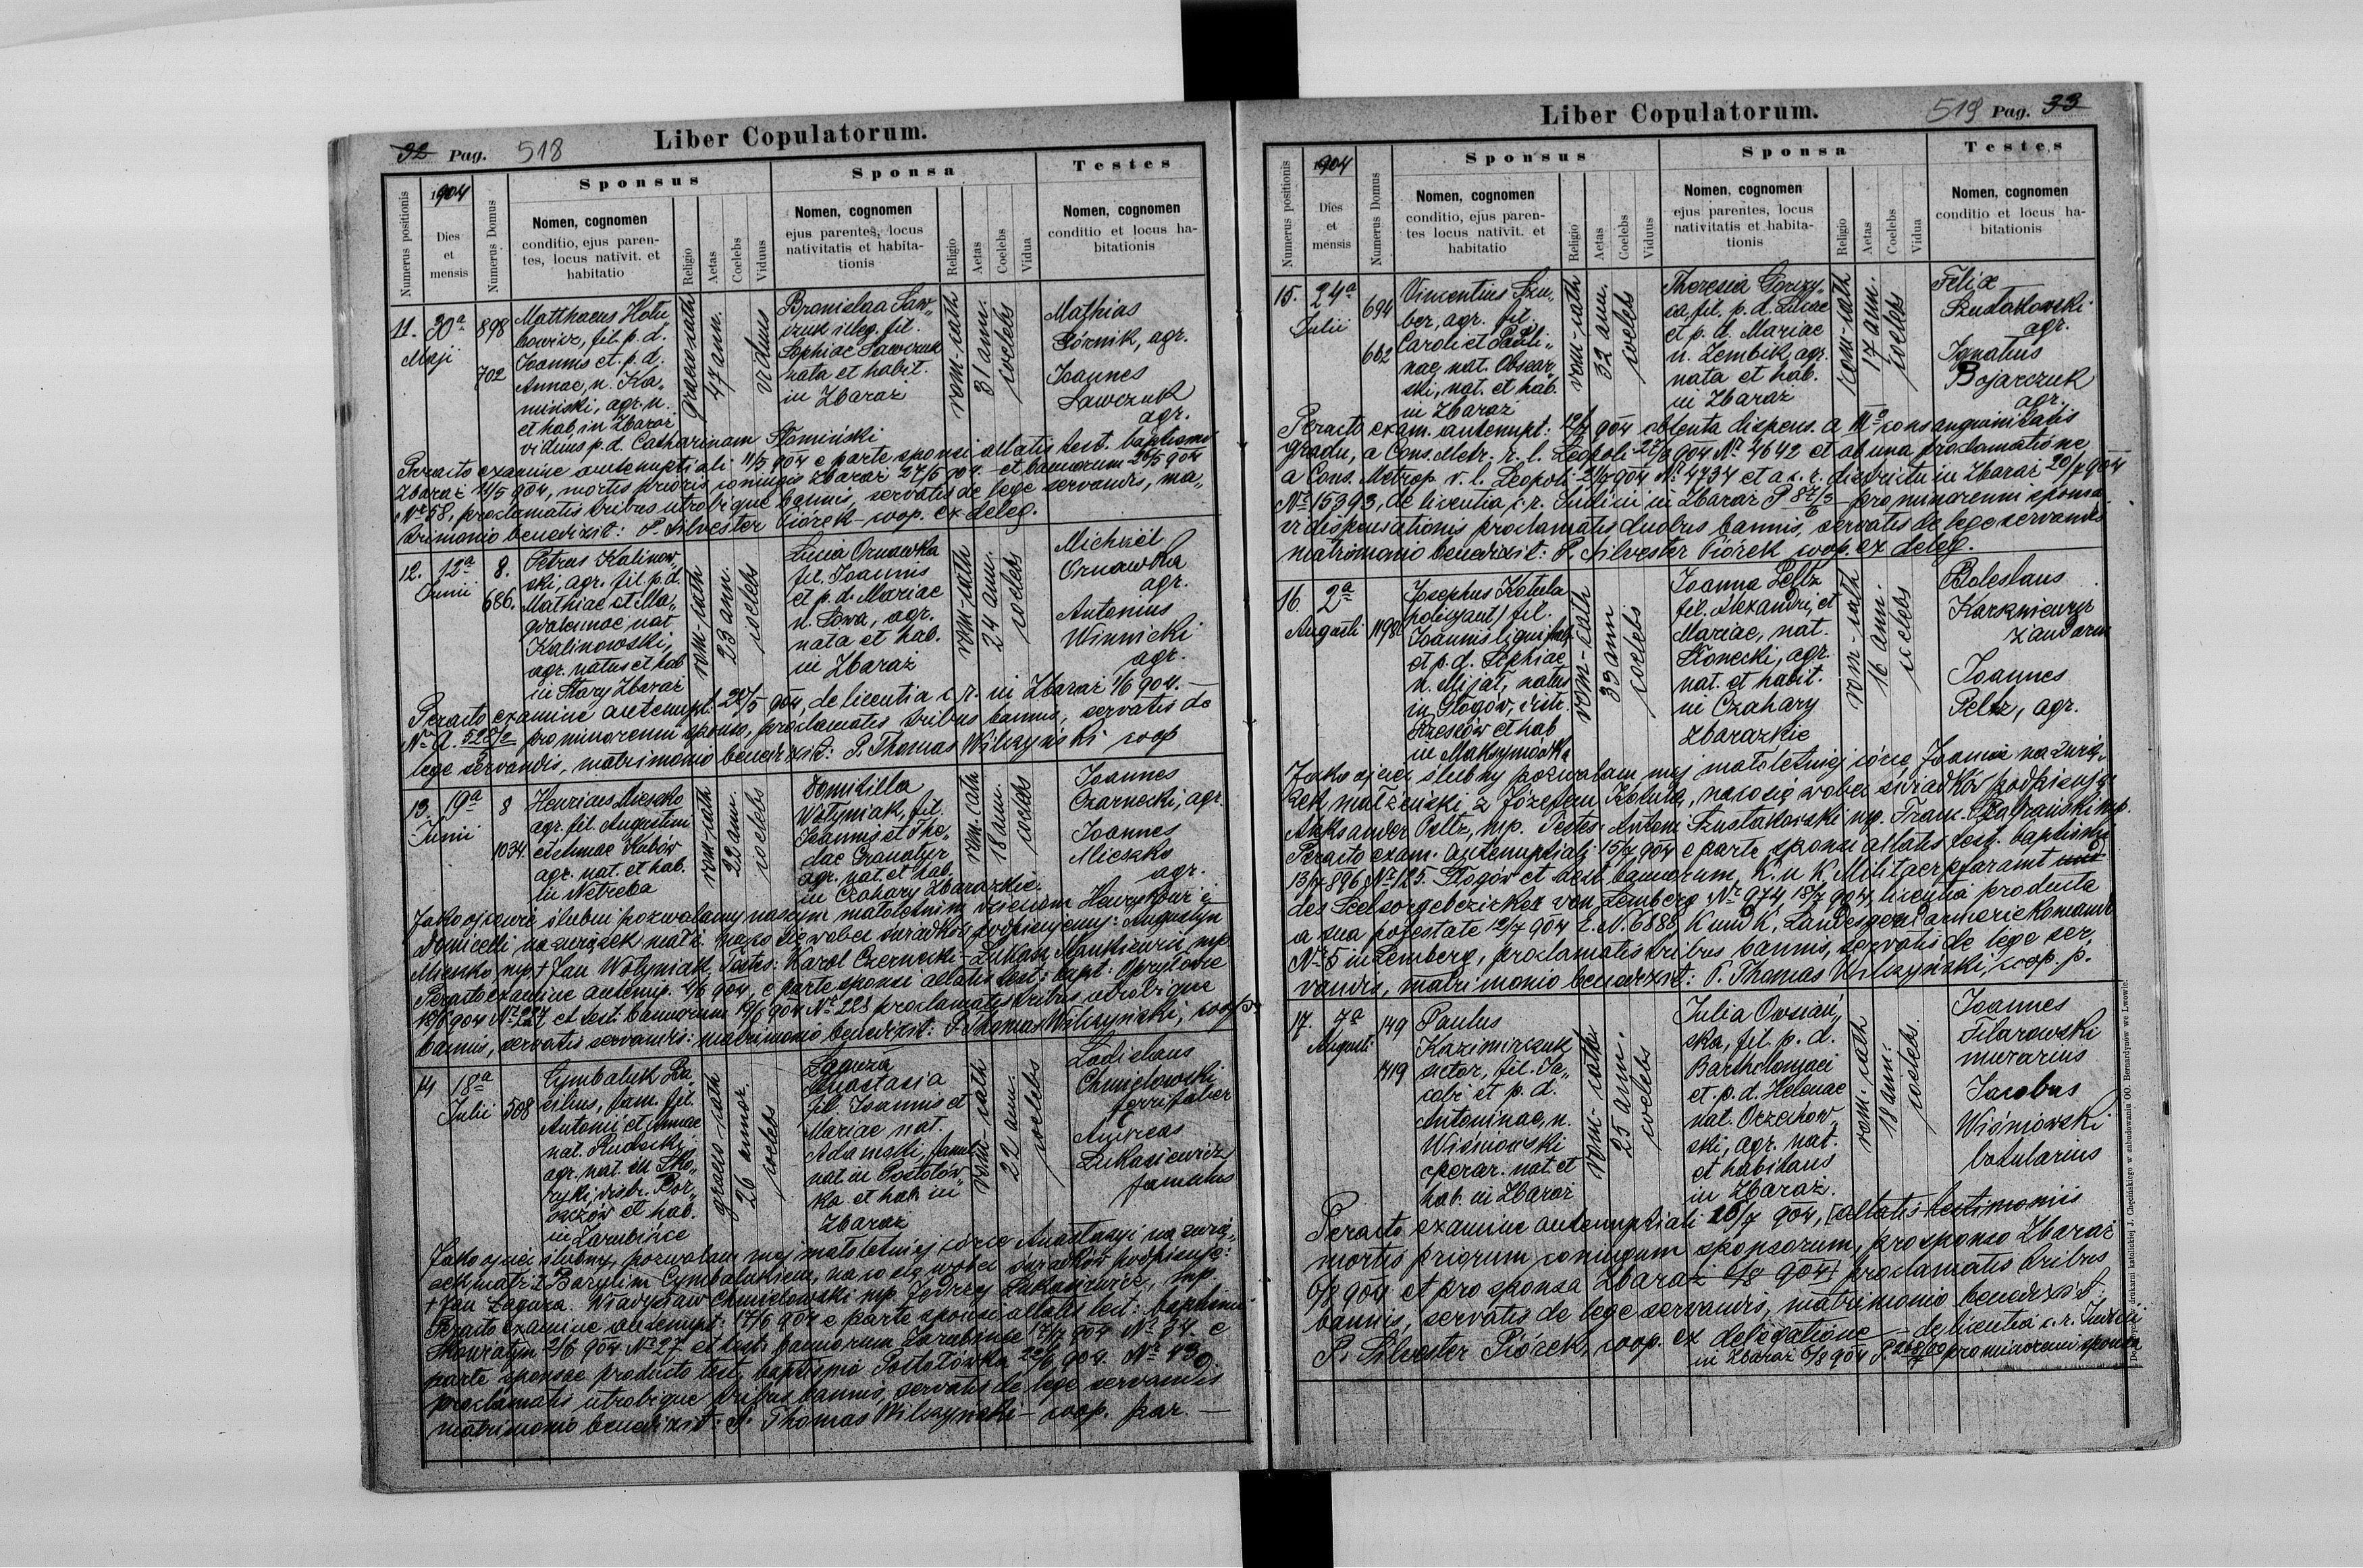 32 Pag. 518
Liber Copulatorum.
Numerus positionis
1904
Dies
et
mensis
Numerus Domus
Sponsus
Nomen, cognomen
conditio, ejus paren-
tes, locus nativit. et
habitatio
Religio
Aetas
Coelebs
Viduus
Sponsa
Nomen, cognomen
ejus parentes, locus
nativitatis et habita-
tionis
Religio
Aetas
Coelebs
Vidua
Testes
Nomen, cognomen
conditio et locus ha-
bitationis
11.
30a
Maji
898
702
Matthaeus Hołu
bowicz, fil. p. d.
Joannis et p. d.
Annae, n. Ka„
miński, agr. n.
et hab in Zbaraż
viduus p. d. Catharinam Słomiński
graeco-cath
47 ann.
viduus
Bronislaa Saw„
czuk illeg. fil.
Sophiae Sawczuk
nata et habit.
in Zbaraż
rom-cath
31 ann.
coelebs
Mathias
Górnik, agr.
Joannes
Sawczuk
agr.
Peracto examine antenuptiali 11/5 904 e parte sponsi allatis test. baptismi
Zbaraż 11/5 904, mortis prioris coniugis Zbaraż 27/5 904 et bannorum 29/5 904
No 58, proclamatis tribus utrobique bannis, servatis de lege servandis, ma„
trimonio benedixit: P. Silvester Piórek – coop. ex deleg.
12.
12a
Junii
8.
686.
Petrus Kalinow„
ski, agr. fil. p. d.
Mathiae et Ma„
gdalenae, nat
Kalinowski,
agr. natus et hab
in Stary Zbaraż
rom-cath
23 ann.
coelebs
Lucia Ornawka
fil. Joannis
et p. d. Mariae
n. Sowa, agr.
nata et hab.
in Zbaraż
rom-cath
24 ann.
coelebs
Michaël
Ornawka
agr.
Antonius
Winnicki
agr.
Peracto examine antenupt. 20/5 904, de licentia c. r. in Zbaraż 1/6 904. –
No A. 528/2 pro minorenni sponso, proclamatis tribus bannis, servatis de
lege servandis, matrimonio benedixit: P. Thomas Wilczyński coop
13.
19a
Junii
8
1034.
Henricus Mieszko
agr. fil. Augustini
et Annae Kabów
agr. nat. et hab.
in Netreba
rom-cath
22 ann.
coelebs
Domitilla
Wołyniak, fil.
Joannis et The„
clae Granatyr
agr. nat. et hab.
in Czahary Zbarazkie.
rom.cath
18 ann.
coelebs
Joannes
Czarnecki, agr.
Joannes
Mieszko
agr.
Jako ojcowie ślubni pozwalamy naszym małoletnim dzieciom Henrykowi i
Domiceli na związek małż. na co się wobec świadków podpisujemy: Augustyn
Mieszko mp + Jan Wołyniak, Testes: Karol Czernecki – Łukasz Mankiewicz, mp
Peracto examine antenup. 4/6 904, e parte sponsi allatis test: bapt: Opryłowce
18/6 904 No 227 et test. bannorum 19/6 904 No 228 proclamatis tribus utrobique
bannis, servatis servandis: matrimonio benedixit: P. Thomas Wilczyński, coop
14
18a
Julii
508
Cymbaluk Ba„
silius, fam. fil.
Antonii et Annae
nat. Rudecki,
agr. nat. in Sko„
ryki, distr. Bor„
szczów et hab.
in Zarubińce
graeco-cath
26 annor.
coelebs
Łagura
Anastasia
fil. Joannis et
Mariae nat.
Adamski, famul
nat in Postołów„
ka et hab. in
Zbaraż
rom-cath
22 ann.
coelebs
Ladislaus
Chmielowski
ferrifaber
Andreas
Łukasiewicz
famulus
Jako ojciec ślubny, pozwalam mej małoletniej córce Anastazyi na zwią„
zek małż. z Bazylim Cymbalukiem, na co się wobec świadków podpisuję:
+ Jan Łagura. Władysław Chmielowski mp. Jędrzej Łukasiewicz, mp.
Peracto examine antenupt: 17/6 904 e parte sponsi allatis test: baptismi
2/6 904 No 27 et test: bannorum Zarubińce 17/7 904 No 34. e
parte sponsae producto test. baptismi Postołówka 22/6 904. No 430.
proclamatis utrobique tribus bannis, servatis de lege servandis
matrimonio benedixit: P. Thomas Wilczyński – coop. par. –
Liber Copulatorum.
519 Pag. 33
Numerus positionis
1904
Dies
et
mensis
Numerus Domus
Sponsus
Nomen, cognomen
conditio, ejus paren-
tes locus nativit. et
habitatio
Religio
Aetas
Coelebs
Viduus
Sponsa
Nomen, cognomen
ejus parentes, locus
nativitatis et habita-
tionis
Religio
Aetas
Coelebs
Vidua
Testes
Nomen, cognomen
conditio et locus ha-
bitationis
15.
24a
Julii
694
662
Vincentius Szu„
ber, agr. fil.
Caroli et Pauli„
nae, nat. Obsear„
ski, nat. et hab.
in Zbaraż
rom-cath
32 ann.
coelebs
Theresia Gorzy„
ca, fil. p. d. Lucae
et p. d. Mariae
n. Zembik, agr.
nata et hab.
in Zbaraż
rom-cath
17 ann.
coelebs
Felix
Szustakowski
agr.
Ignatius
Bojarczuk
agr.
Peracto exam. antenupt: 12/7 904 obtenta dispens. a IIIo consanguinitatis
gradu, a Cons. Metr. r. l. Leopoli 22/7 904 No 4642 et ab una proclamatione
a Cons. Metrop. r. l. Leopoli 21/7 904 No 4734 et a c. r. districtu in Zbaraż 20/7 904
No 15393, de licentia c. r. Judicii in Zbaraż P 87/3/6 – pro minorenni sponsa
vi dispensationis proclamatis duobus bannis, servatis de lege servandis
matrimonio benedixit: P. Silvester Piórek coop. ex deleg.
16.
2a
Augusti
1198
Josephus Kotula
(policyant) fil.
Joannis
et p. d. Sophiae
n. Mijał, natus
in Głogów, distr.
Rzeszów et hab
in Maksymówka
rom-cath
33 ann
coelebs
Joanna Peltz
fil. Alexandri, et
Mariae, nat.
Słonecki, agr.
nat. et habit.
in Czahary
Zbarazkie
rom-cath
16 ann.
coelebs
Boleslaus
Karkniewicz
żandarm
Joannes
Peltz, agr.
Jako ojciec ślubny pozwalam mej małoletniej córce Joannie na zwią„
zek małżeński z Józefem Kotulą, na co się wobec świadków podpisuję:
Aleksander Peltz, mp. Testes: Antoni Szustakowski mp. Franc. Zagrański mp.
Peracto exam. antenuptiali 15/7 904 e parte sponsi allatis test. baptismi
13/7 896 No 125. Głogów et test. bannorum, K. u K. Militaer pfaramt
des Seelsorgebezirkes von Lemberg No 974, 18/7 904, licentia producta
a sua potestate 12/7 904 E. N. 6888, K und K. Landesgendarmerie Komando
No 5 in Lemberg, proclamatis tribus bannis, servatis de lege ser„
vandis, matrimonio benedixit: P. Thomas Wilczyński, coop. p.
17.
7a
Augusti
149
1419
Paulus
Kazimirczuk
actor, fil. Ja„
cobi et p. d.
Antoninae, n.
Wiśniowski
operar. nat et
hab. in Zbaraż
rom-cath
25 ann.
coelebs
Julia Owsiań„
ska, fil. p. d.
Bartholomaei
et p. d. Helenae
nat. Orzechow„
ski, agr. nat.
et habitans
in Zbaraż.
rom.-cath
18 ann.
coelebs.
Joannes
Filarowski
murarius
Jacobus
Wiśniowski
botularius
Peracto examine antenuptiali 26/7 904, [allatis testimoniis
mortis priorum coniugum sponsorum, pro sponso Zbaraż
6/8 904 et pro sponsa Zbaraż 6/8 904] proclamatis tribus
bannis, servatis de lege servandis, matrimonio benedixit
P. Silvester Piórek, coop. ex delegatione – de licentia c. r. Judicii
in Zbaraż 6/8 904 pro minorenni sponsa
w drukarni katolickiej J. Chęcińskiego w zabudowaniu OO. Bernardynów we Lwowie.